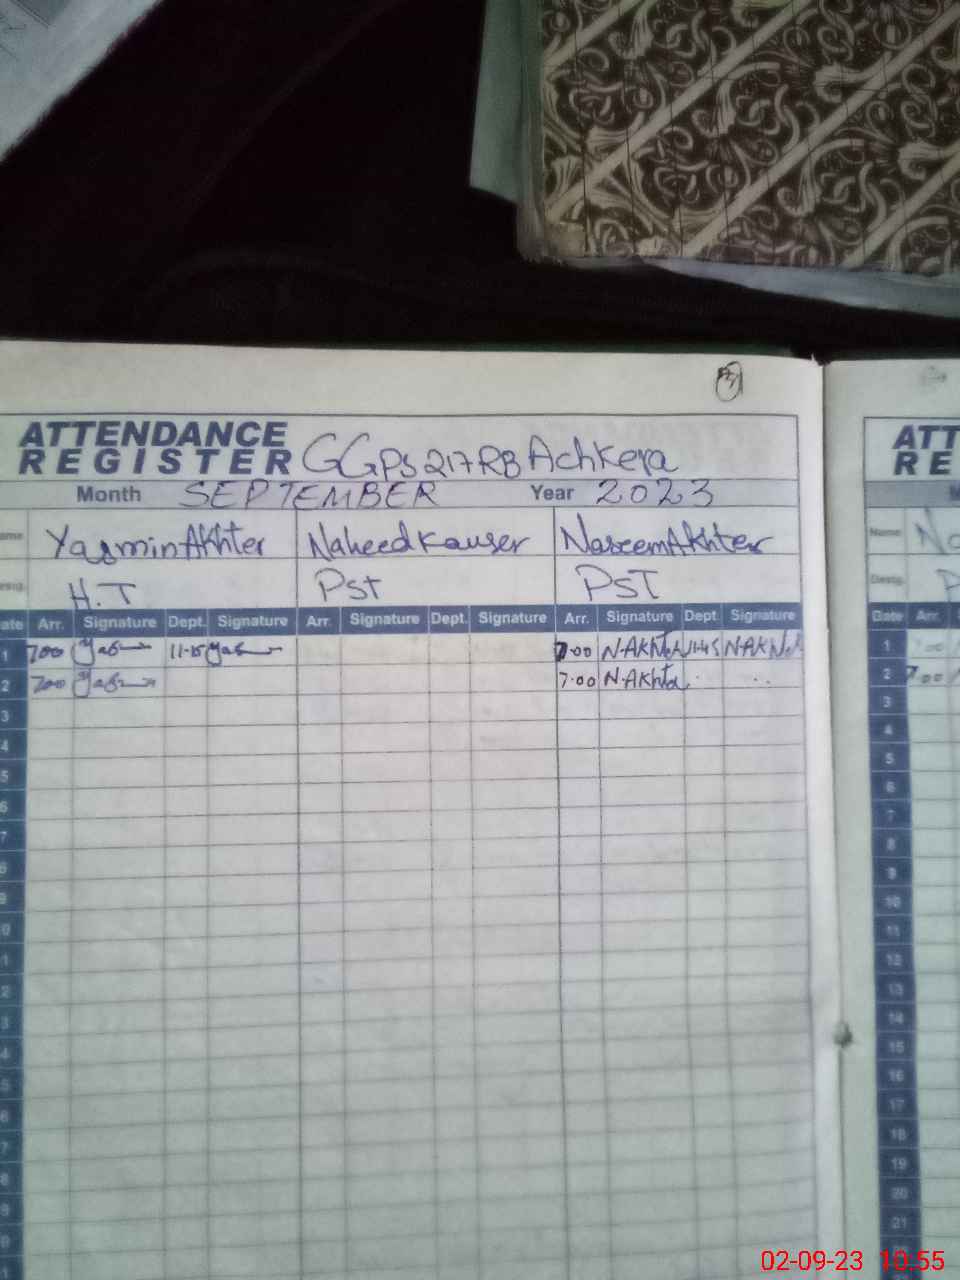 ATTENDANCE
REGISTER GGPS 217RB Achkera
Month SEPTEMBER Year 2023
ame Yasmin Akhter Naheed Kauser Naseem Akhter
esig. H.T Pst PST
ate Arr. Signature Dept. Signature Arr. Signature Dept. Signature Arr. Signature Dept. Signature
1 700 11-15 7.00 N.AKhter 11-45 N.AKh
2 700 7.00 N.AKhta
3
4
5
6
7
8
9
0
1
2
3
4
5
6
7
8
9
0
1
ATT
RE
M
Name Na
Desig. P
Date Arr.
1
2 7.00
3
4
5
6
7
8
9
10
11
12
13
14
15
16
17
18
19
20
21
02-09-23 10:55